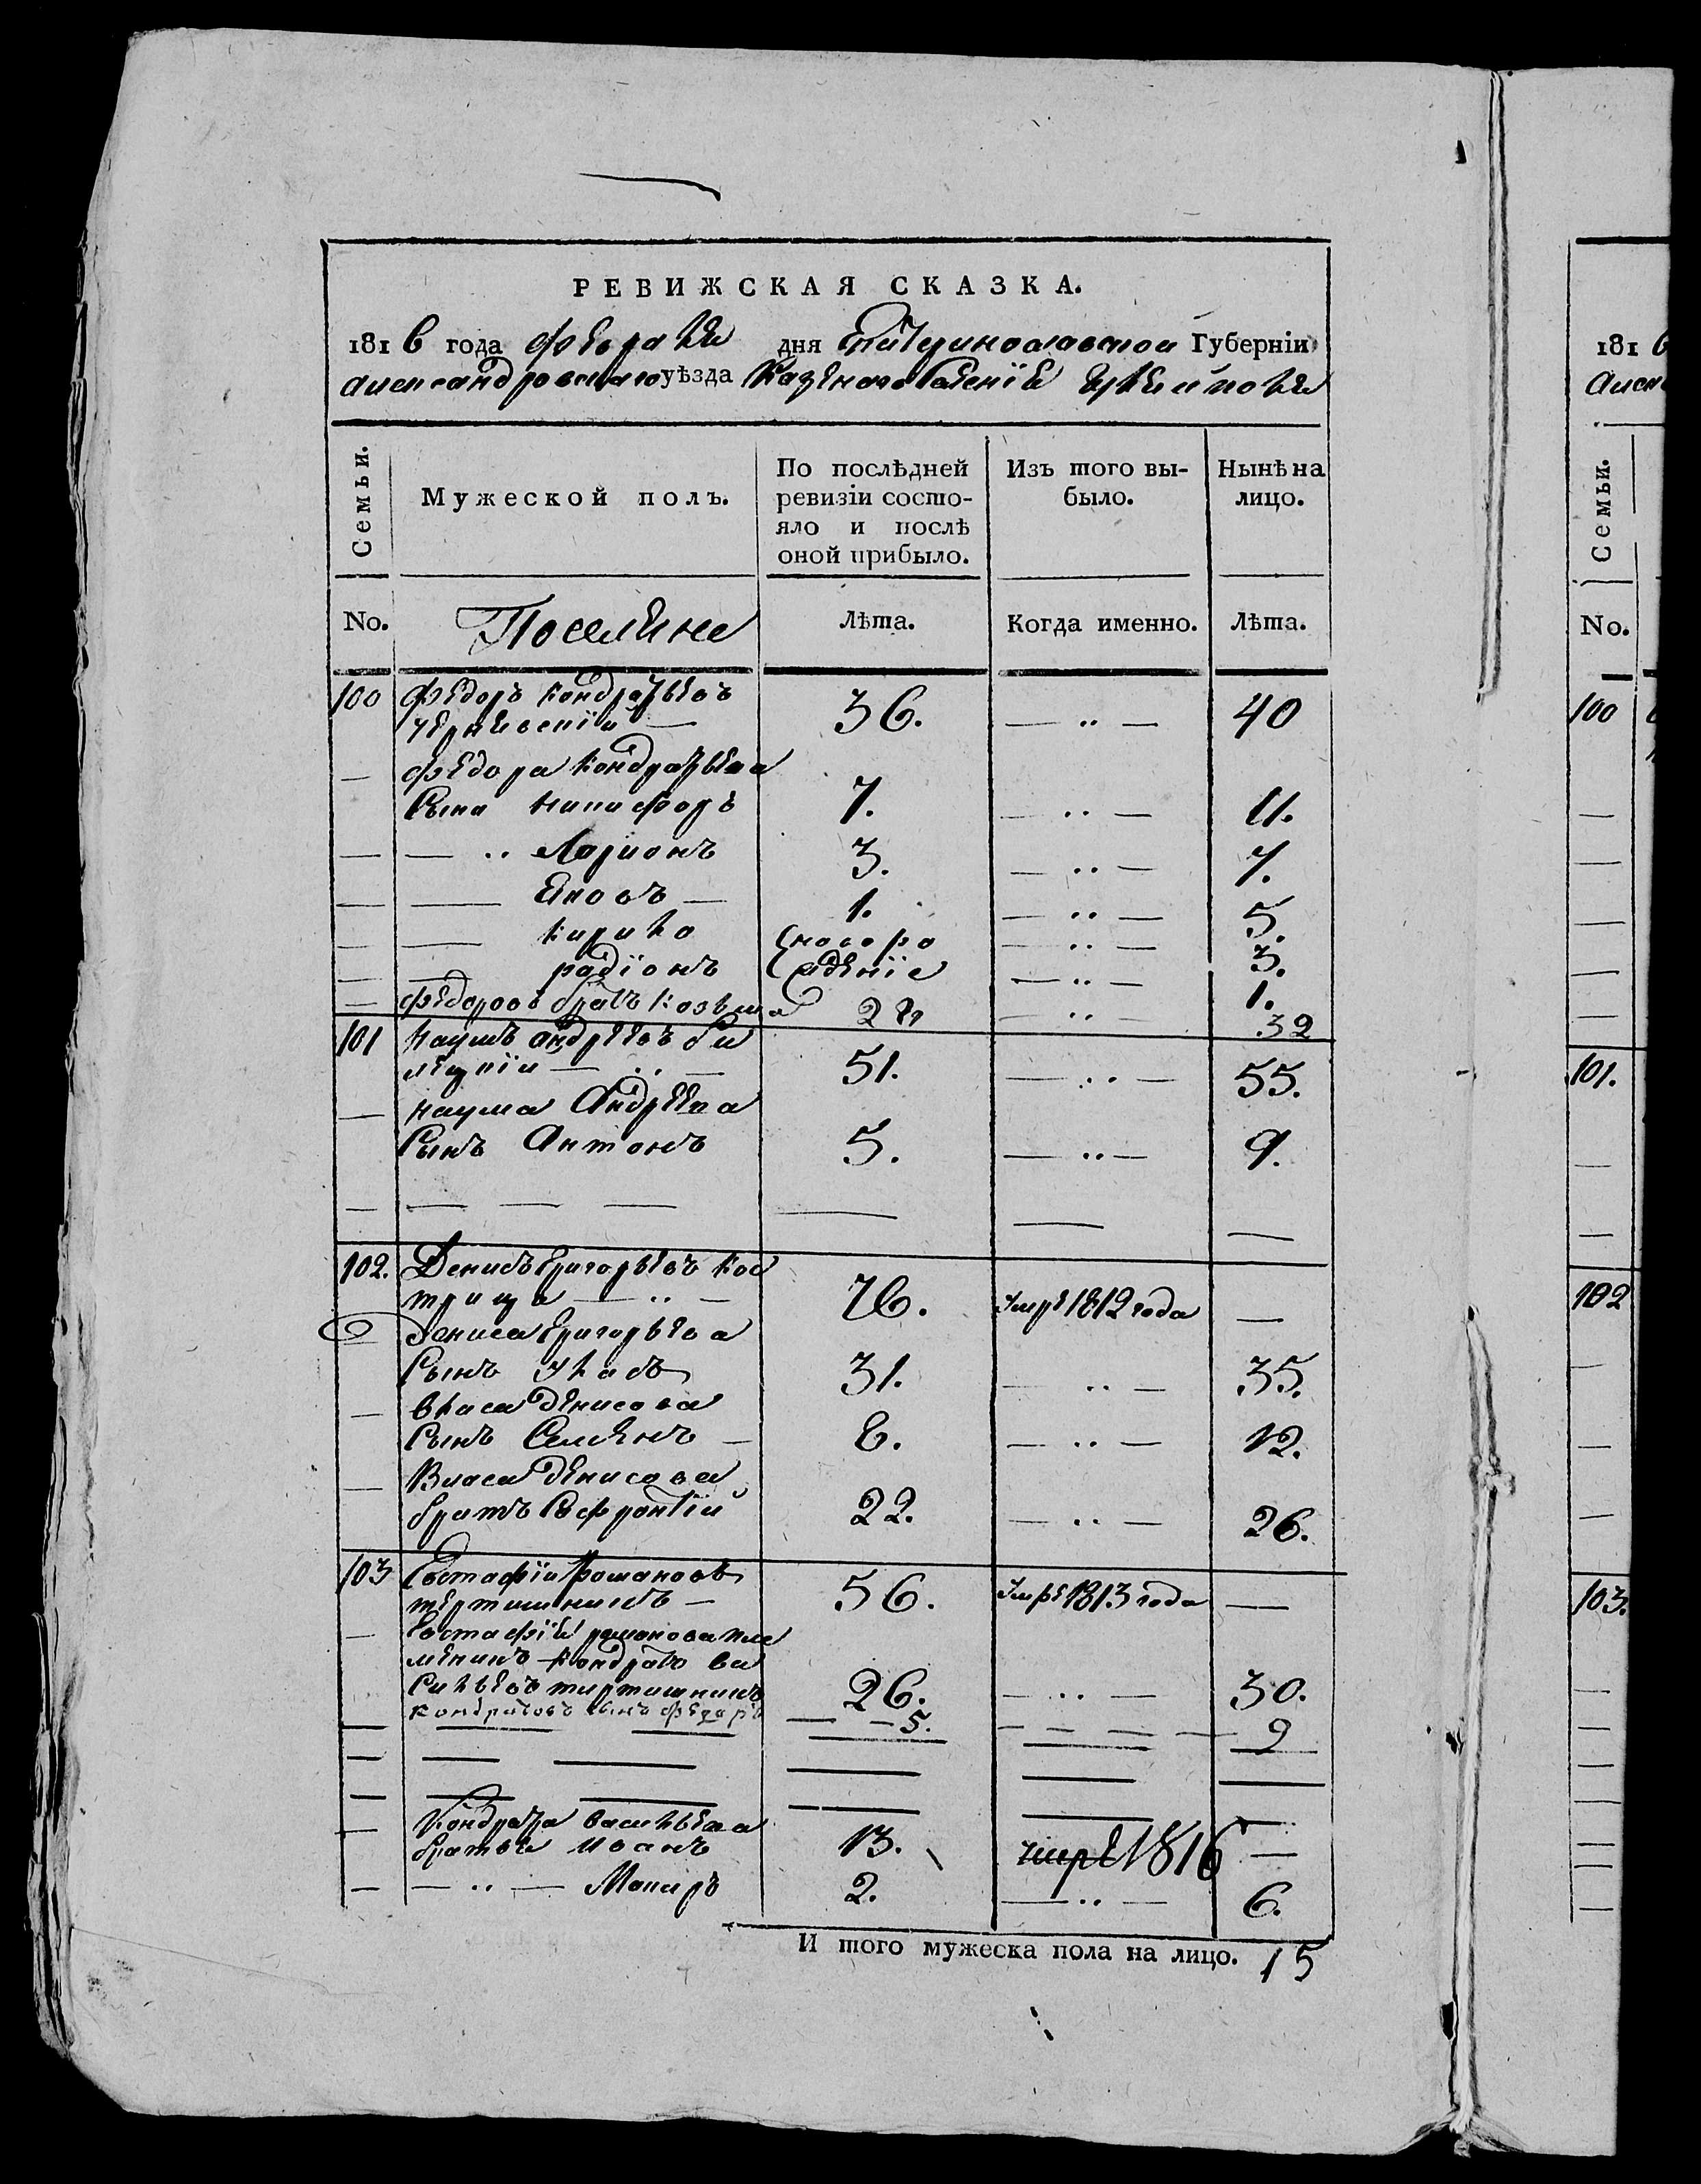 РЕВИЖСКАЯ СКАЗКА.
1816 года февраля дня Екатеринославской Губерніи
александровскаго уѣзда Казенаго Селенія
Семьи.
Мужеской полъ.
По послѣдней
ревизіи состо-
яло и послѣ
оной прибыло.
Изъ того вы-
было.
Нынѣ на
лицо.
No. Поселяне Лѣта. Когда именно. Лѣта.
100 Федоръ Кондратьевъ
Чернявскій — 36. — „ — 40
— Федора Кондратьева
Сына Никифоръ 7. — „ — 11.
— — „ Ларионъ 3. — „ — 7.
— — Яковъ — 1. — „ — 5.
— — Кирило — „ — 3.
— — радіонъ — „ — 1.
— Федоровъ братъ Козьма 28 — „ — 32
101 Наумъ андреевъ
51. — „ — 55.
— Наума Андреева
Сынъ Антонъ 5. — „ — 9.
102. Денисъ Григорьевъ Кос
трица — „ — 76. умре 1812 года —
Дениса Григорьева
Сынъ Улас 31. — „ — 35.
— власа Денисова
Сынъ Семенъ — 8. — „ — 12.
— Власа Денисова
братъ Софронтій 22. — „ — 26.
103 Евстафій Романовъ
тертишникъ — 56. Умре 1813 года —
— Евстафія романова пле
меникъ Кондратъ Ва
сильевъ тиртишникъ 26. — „ — 30.
Кондратовъ сынъ федаръ — — 5. — — — — 9
— Кондрата васильева
братья Иванъ 13. умре 1816 —
— — „ — Макаръ 2. — „ — 6.
И того мужеска пола на лицо. 15
1816
Семьи.
No.
100
101.
102
103.